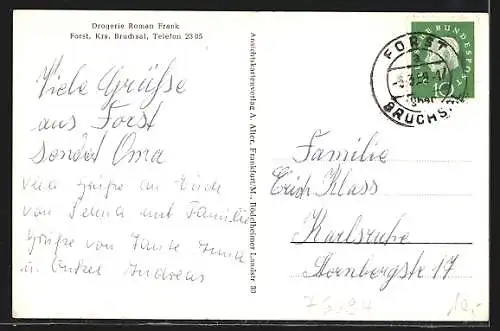 Drogerie Roman Frank
Forst, Krs. Bruchsal, Telefon 23 05
Viele Grüße
aus Forst
sendet Oma
viele Grüße an Euch
von und Familie
Grüße von Tante
u. Onkel Andreas
Ansichtskartenverlag A. Alter, Frankfurt/M., Rödelheimer Landstr. 30
FORST
BRUCHSAL
DEUTSCHE BUNDESPOST
10
Familie
Erich Klass
Karlsruhe
Sternbergstr 17
10,-